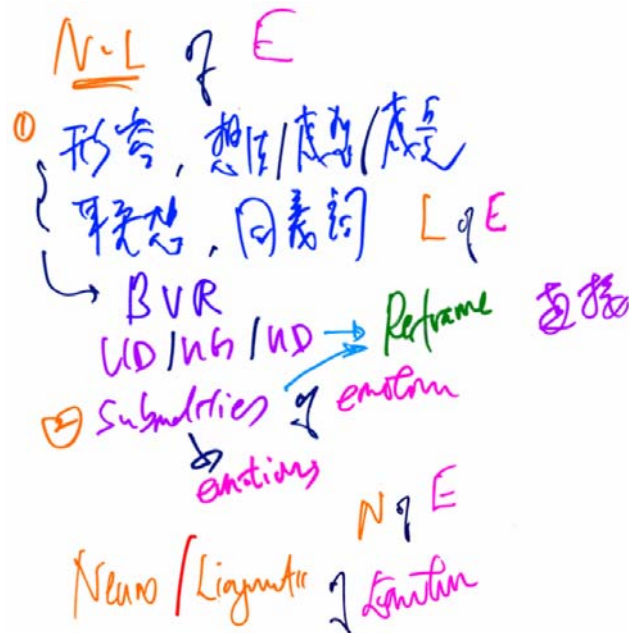 N-L of E
① 形容, 想法/感想/感覺
聯想, 同義詞 L of E
BVR
UD/UG/UD → Reframe 直接
② Submodalities of emotion
emotions
N of E
Neuro / Linguistic of Emotion